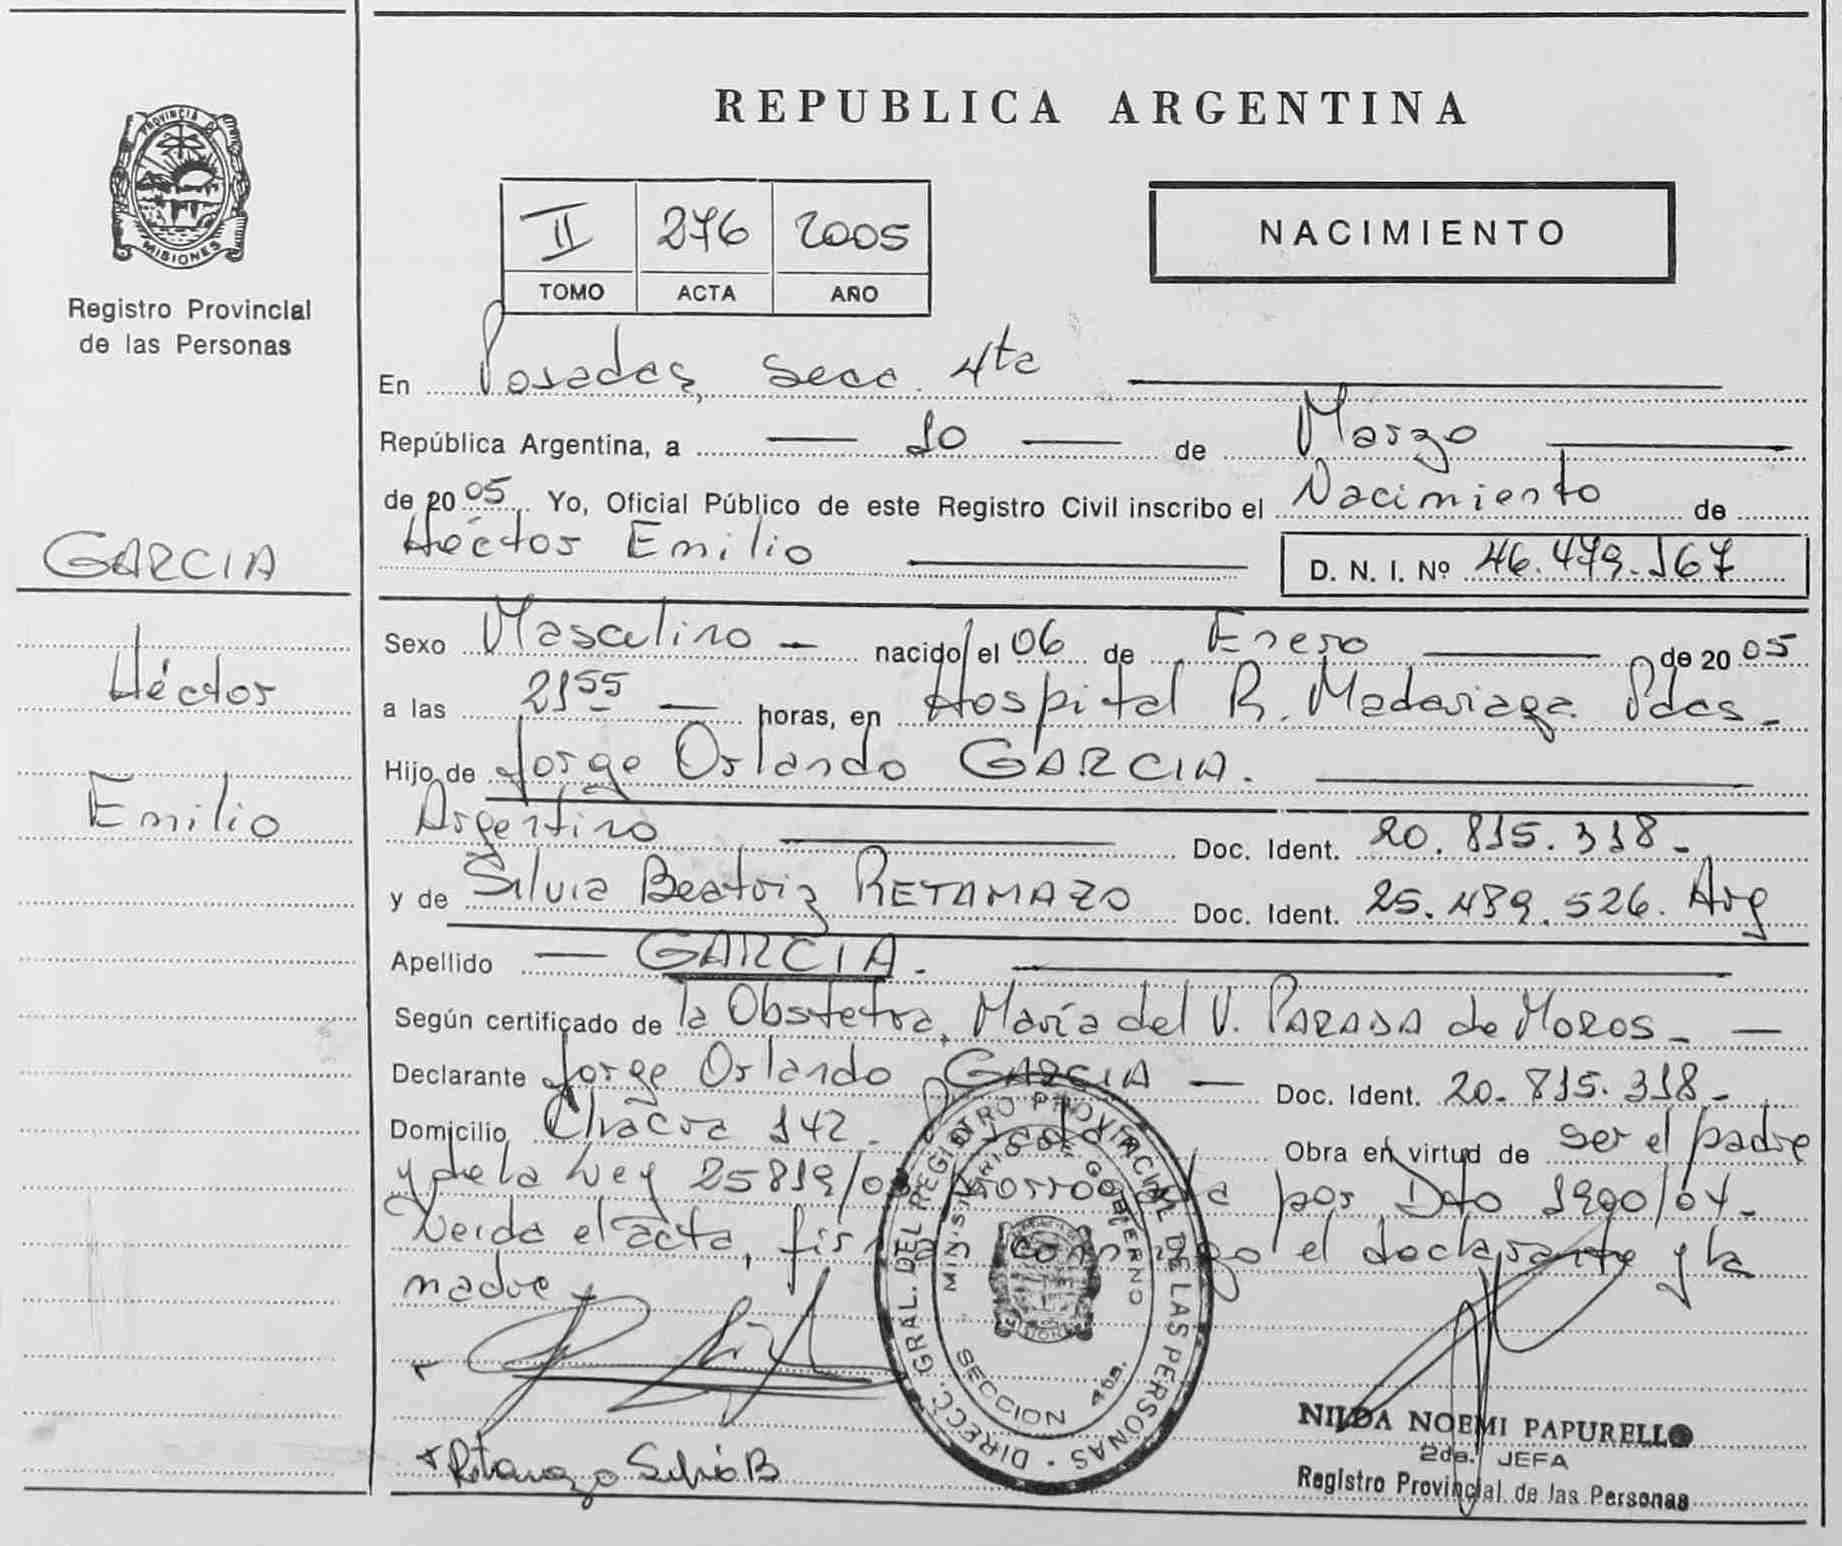 PROVINCIA DE
MISIONES
Registro Provincial
de las Personas
GARCIA
Héctor
Emilio
REPUBLICA ARGENTINA
II 276 2005
TOMO ACTA AÑO
NACIMIENTO
En Posadas, Secc. 4ta
República Argentina, a 10 de Marzo
de 2005 Yo, Oficial Público de este Registro Civil inscribo el Nacimiento de
Héctor Emilio D. N. I. Nº 46.479.167
Sexo Masculino nacido el 06 de Enero de 2005
a las 21 55 horas, en Hospital R. Madariaga Pdas.
Hijo de Jorge Orlando GARCIA.
Argentino Doc. Ident. 20.815.318.
y de Silvia Beatriz RETAMAZO Doc. Ident. 25.489.526. Arg
Apellido GARCIA.
Según certificado de la Obstetra, María del V. PARADA de MOROS.
Declarante Jorge Orlando GARCIA Doc. Ident. 20.815.318.
Domicilio Chacra 142. Obra en virtud de ser el padre
y de la Ley 25819/03 Prorrogada por Dto 1990/04.
Leida el acta, firman conmigo el declarante y la
madre
DIRECC. GRAL. DEL REGISTRO PROVINCIAL DE LAS PERSONAS
MINISTERIO DE GOBIERNO
SECCION 4ta.
Retamazo Silvia B
NILDA NOEMI PAPURELLO
2da. JEFA
Registro Provincial de las Personas